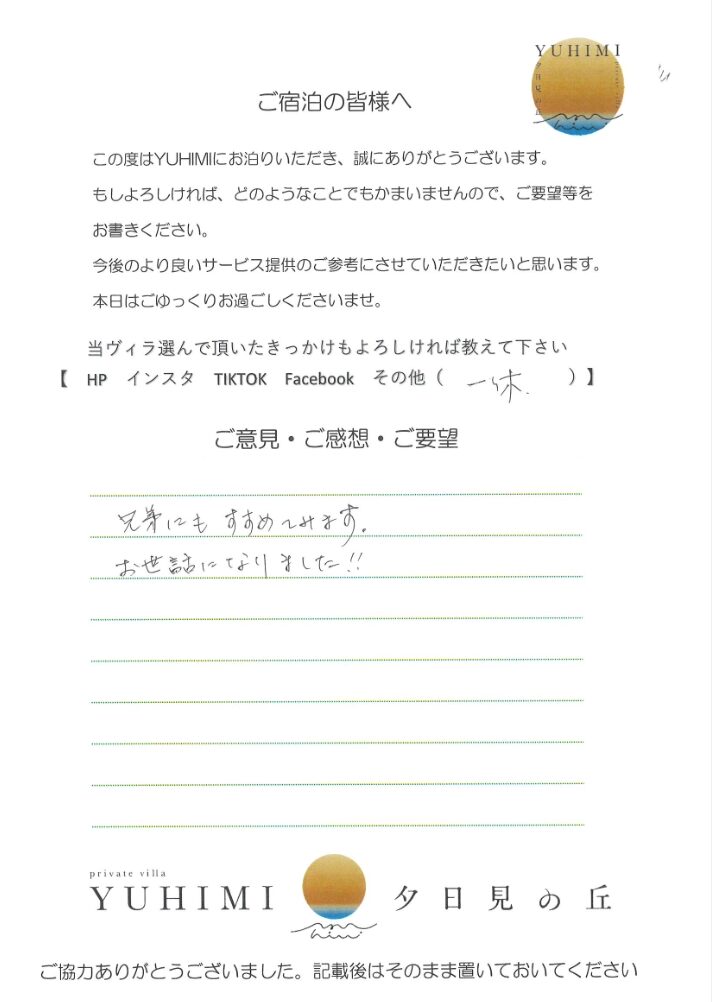 YUHIMI
夕日見の丘
private villa
ご宿泊の皆様へ
この度はYUHIMIにお泊りいただき、誠にありがとうございます。
もしよろしければ、どのようなことでもかまいませんので、ご要望等を
お書きください。
今後のより良いサービス提供のご参考にさせていただきたいと思います。
本日はごゆっくりお過ごしくださいませ。
当ヴィラ選んで頂いたきっかけもよろしければ教えて下さい
【 HP インスタ TIKTOK Facebook その他（ 一休. ）】
ご意見・ご感想・ご要望
兄弟にもすすめてみます。
お世話になりました!!
private villa
YUHIMI 夕日見の丘
ご協力ありがとうございました。記載後はそのまま置いておいてください